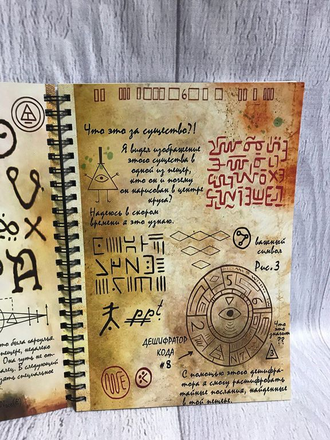 Что это за существо?!
Я видел изображение
этого существа в
одной из пещер,
кто он и почему
он нарисован в центре
круга?
Надеюсь в скором
времени я это узнаю.
важный
символ
Рис.3
ДЕШИФРАТОР
КОДА
#8
Что
это
?？
С помощью этого дешифра-
тора я смогу расшифровать
тайные послания, найденные
в той пещере.